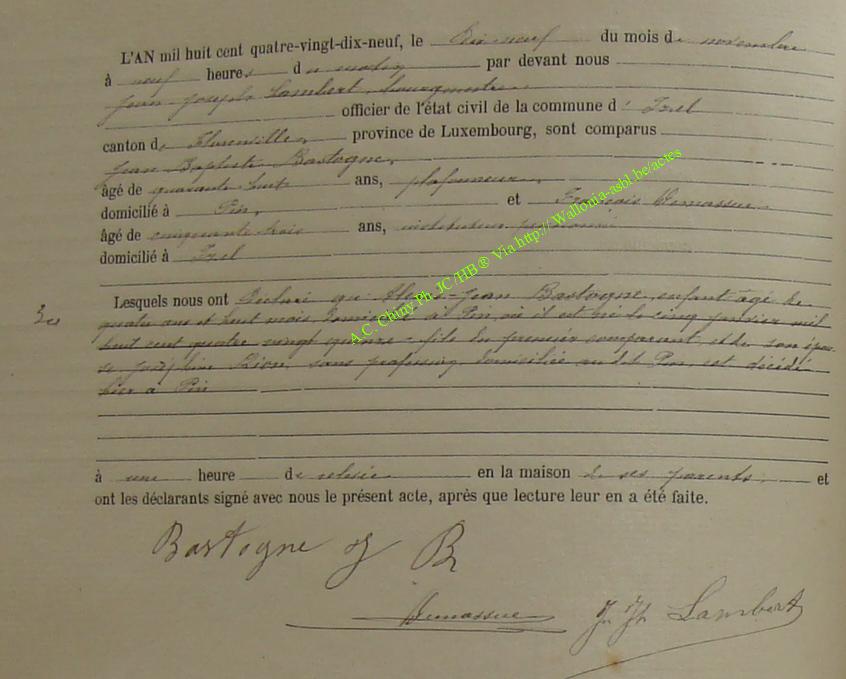 L'AN mil huit cent quatre-vingt-dix-neuf, le dix neuf du mois de novembre
à neuf heures du matin par devant nous
Jean Joseph Lambert, bourgmestre
officier de l'état civil de la commune d' Izel
canton de Florenville, province de Luxembourg, sont comparus
Jean Baptiste Bastogne,
âgé de quarante huit ans, plafonneur,
domicilié à Pin, et François Demassue
âgé de cinquante trois ans, instituteur
domicilié à Izel
Lesquels nous ont déclaré que Jean Bastogne, enfant âgé de
quatre ans et huit mois, domicilié à Pin, où il est né le cinq janvier mil
huit cent quatre vingt quinze, fils du premier comparant, et de son épou-
se Joséphine Rion, sans profession, domiciliée au dit Pin, est décédé
hier à Pin
à une heure de relevée en la maison de ses parents, et
ont les déclarants signé avec nous le présent acte, après que lecture leur en a été faite.
Bastogne J B
Demassue
Jn Jh Lambert
A.C. Chiny Ph. JC /HB ® Via http:// Wallonia-asbl.be/actes